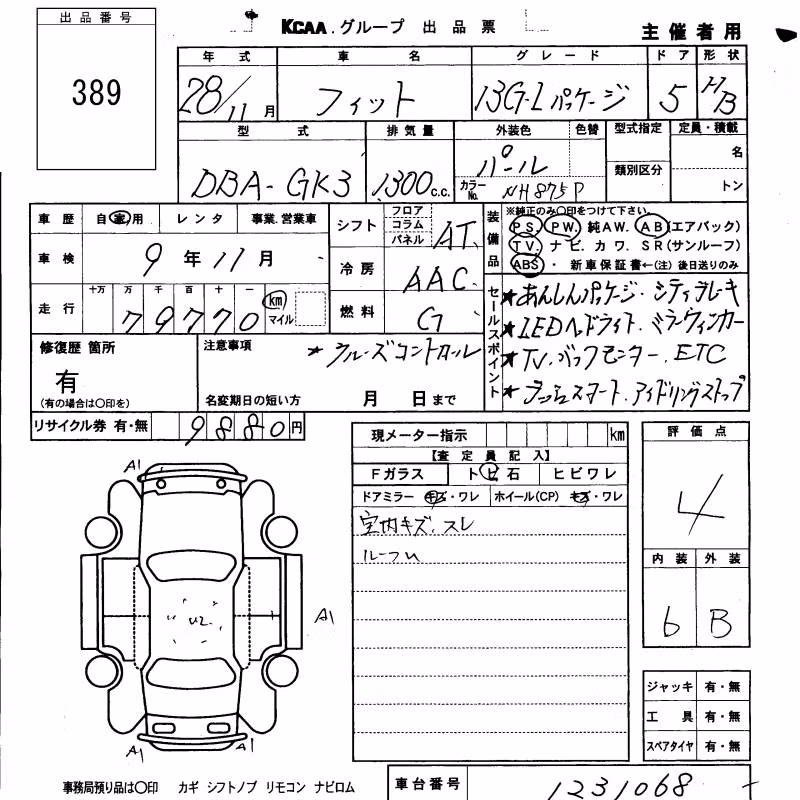 出品番号
389
KCAA.グループ 出品票
主催者用
年式 車名 グレード ドア 形状
28/11月 フィット 13G・Lパッケージ 5 HB
型式 排気量 外装色 色替 型式指定 定員・積載
DBA-GK3 1300c.c. パール 類別区分 名
カラーNo. NH875P トン
車歴 自家用 レンタ 事業.営業車
シフト フロア コラム パネル AT
装備品 ※純正のみ〇印をつけて下さい。
PS. PW. 純AW. AB(エアバック)
TV. ナビ. カワ. SR(サンルーフ)
ABS・ 新車保証書←(注)後日送りのみ
車検 9年11月
冷房 AAC
走行 十万 万 千 百 十 一 79770 km マイル
燃料 G
セールスポイント
★あんしんパッケージ・シティブレーキ
★LEDヘッドライト.ミラーウィンカー
★TV.バックモニター.ETC
★プッシュスタート.アイドリングストップ
修復歴 箇所 有 (有の場合は〇印を)
注意事項 ★クルーズコントロール
名変期日の短い方 月 日まで
リサイクル券 有・無 9880円
現メーター指示 km
【査定員記入】
Fガラス ト ビ 石 ヒビワレ
ドアミラー キズ・ワレ ホイール(CP) キズ・ワレ
室内キズ.スレ
ルーフU
評価点
4
内装 外装
6 B
A1
U2
A1
A1 A1
ジャッキ 有・無
工具 有・無
スペアタイヤ 有・無
事務局預り品は〇印 カギ シフトノブ リモコン ナビロム
車台番号 1231068